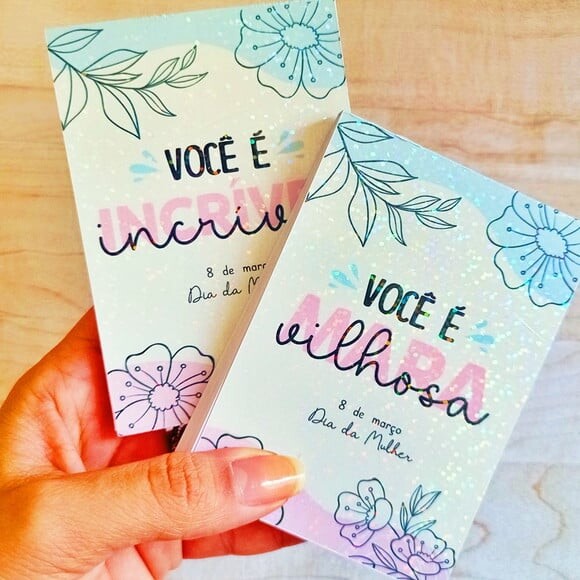 VOCÊ É
INCRÍVE
incríve
8 de març
Dia da M
VOCÊ É
MARA
vilhosa
8 de março
Dia da Mulher